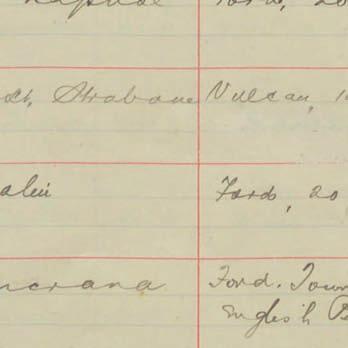 Ford, 20
Strabane Vulcan, 1
Ford, 20
ncrana Ford. Tour
English B